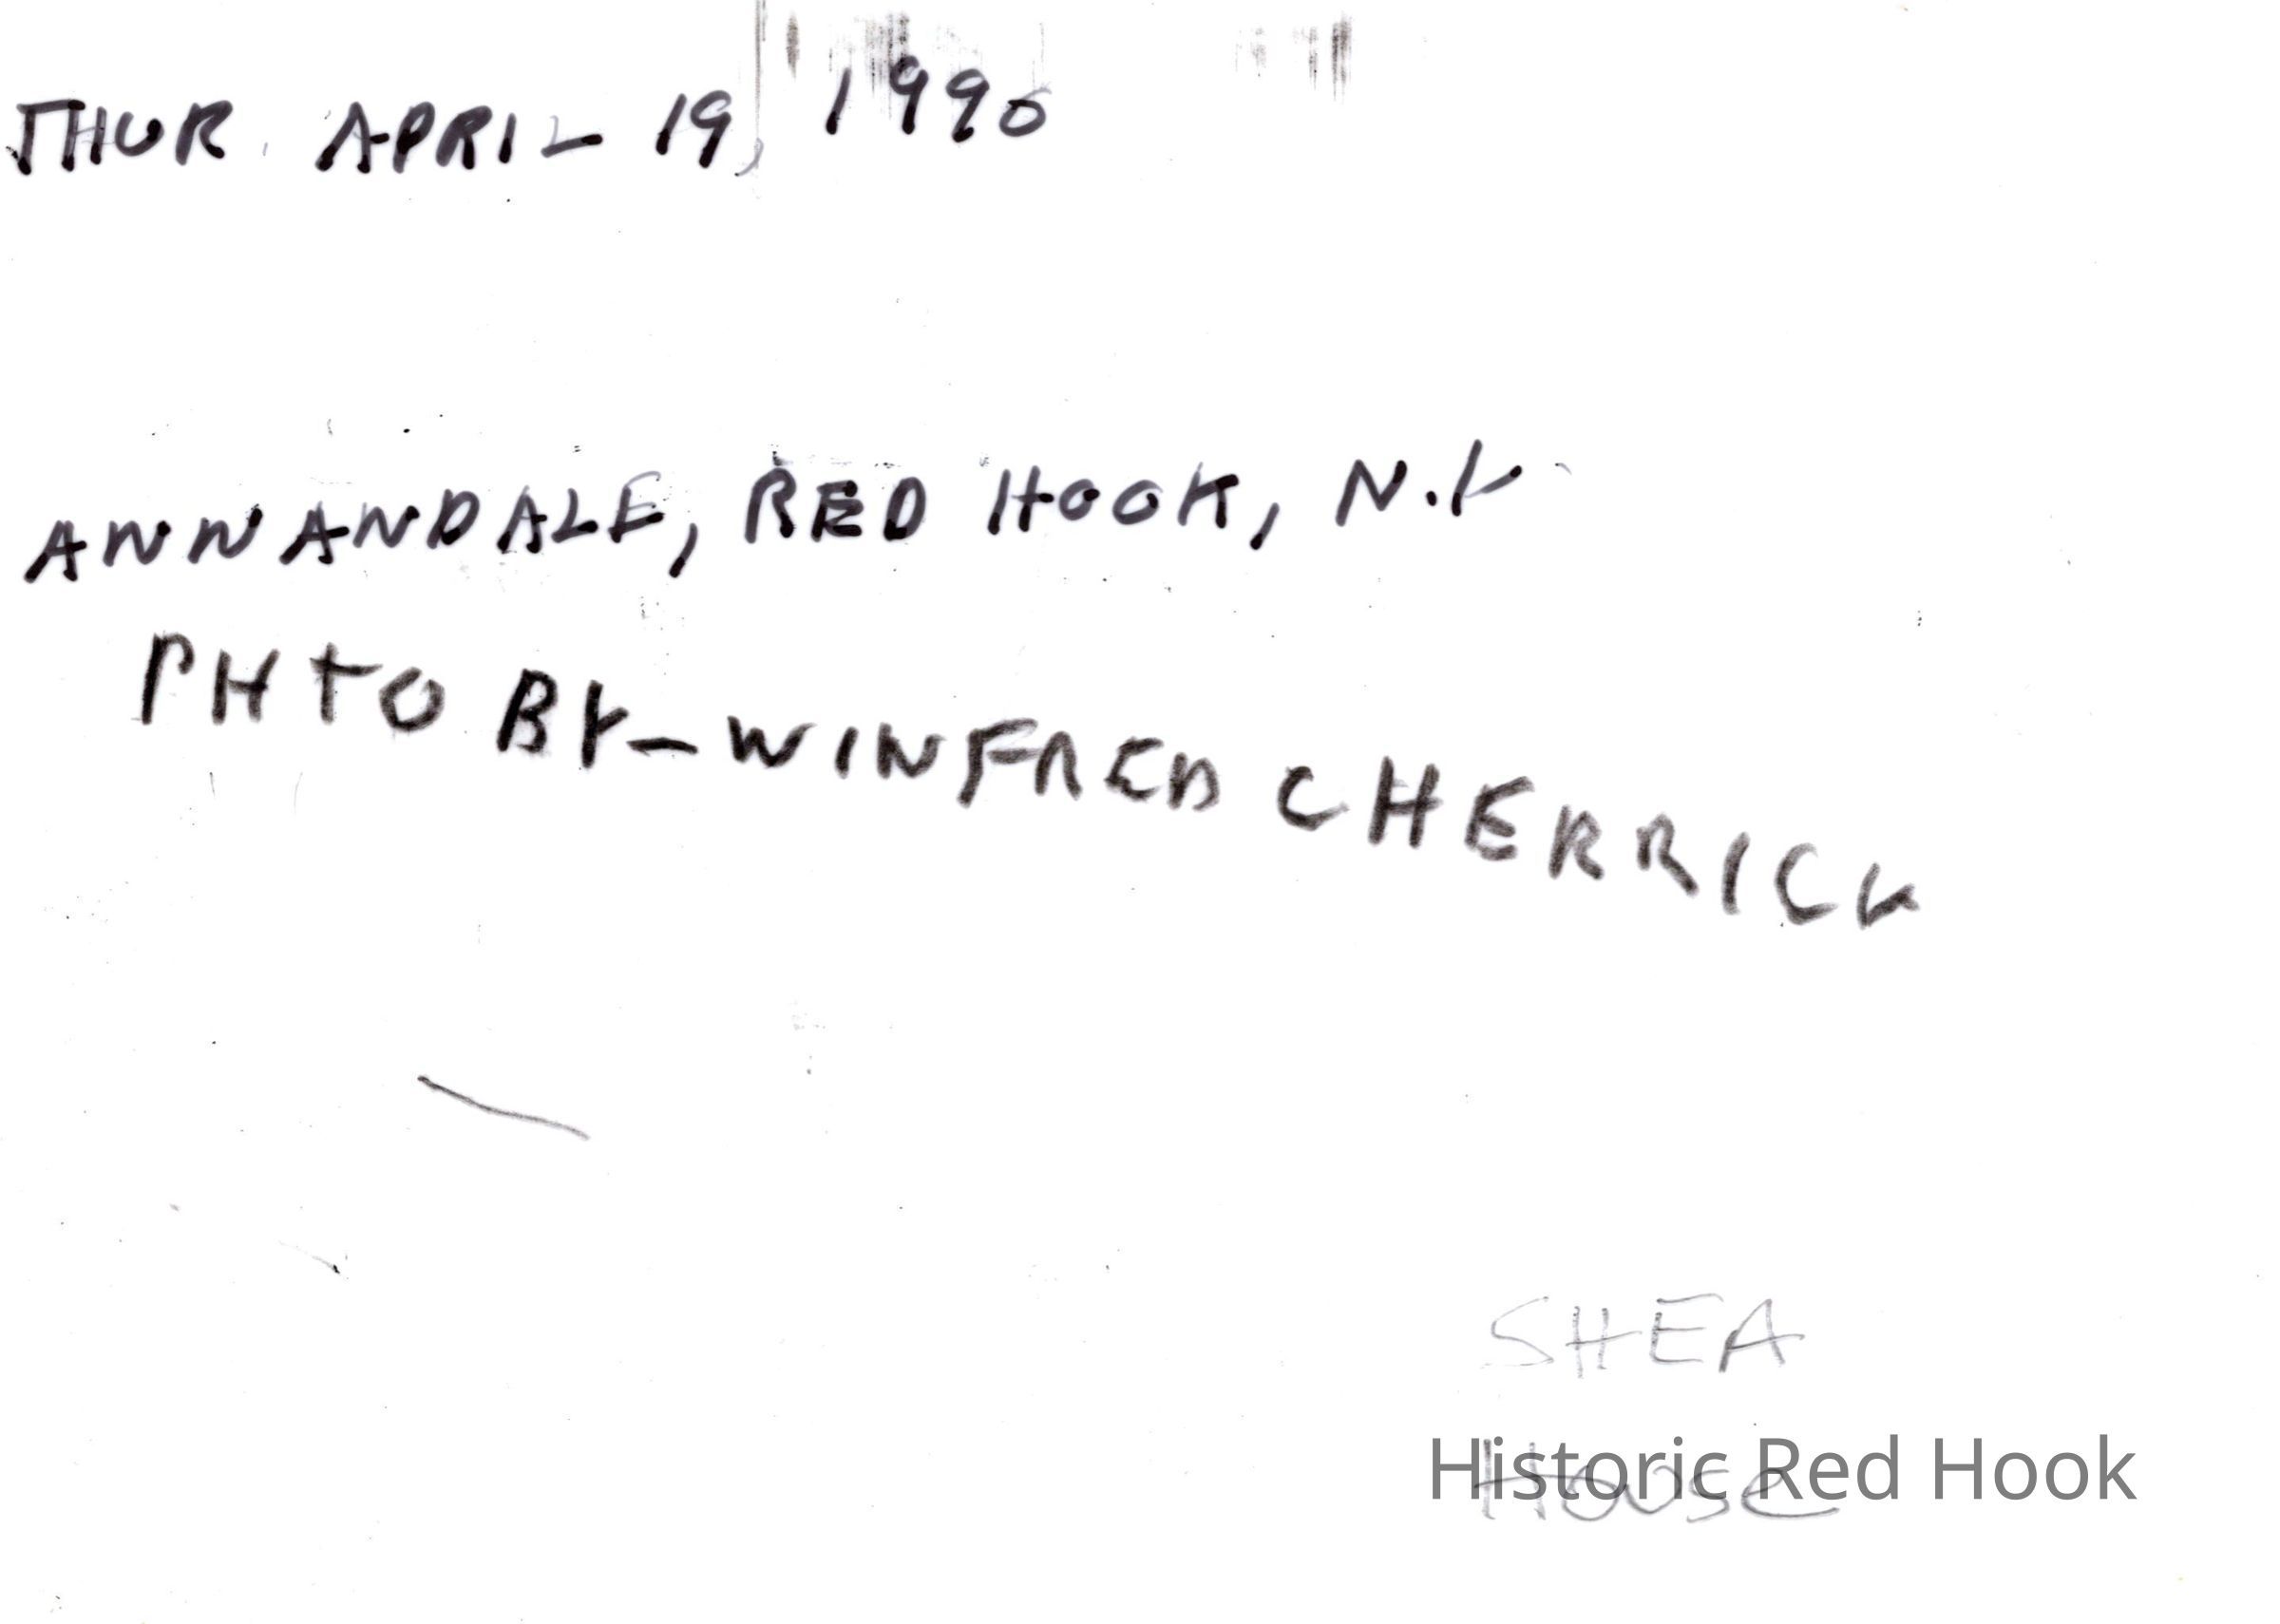 THUR. APRIL 19, 1990
ANNANDALE, RED HOOK, N.Y.
PHTO BY-WINFRED CHERRICK
SHEA
House
Historic Red Hook